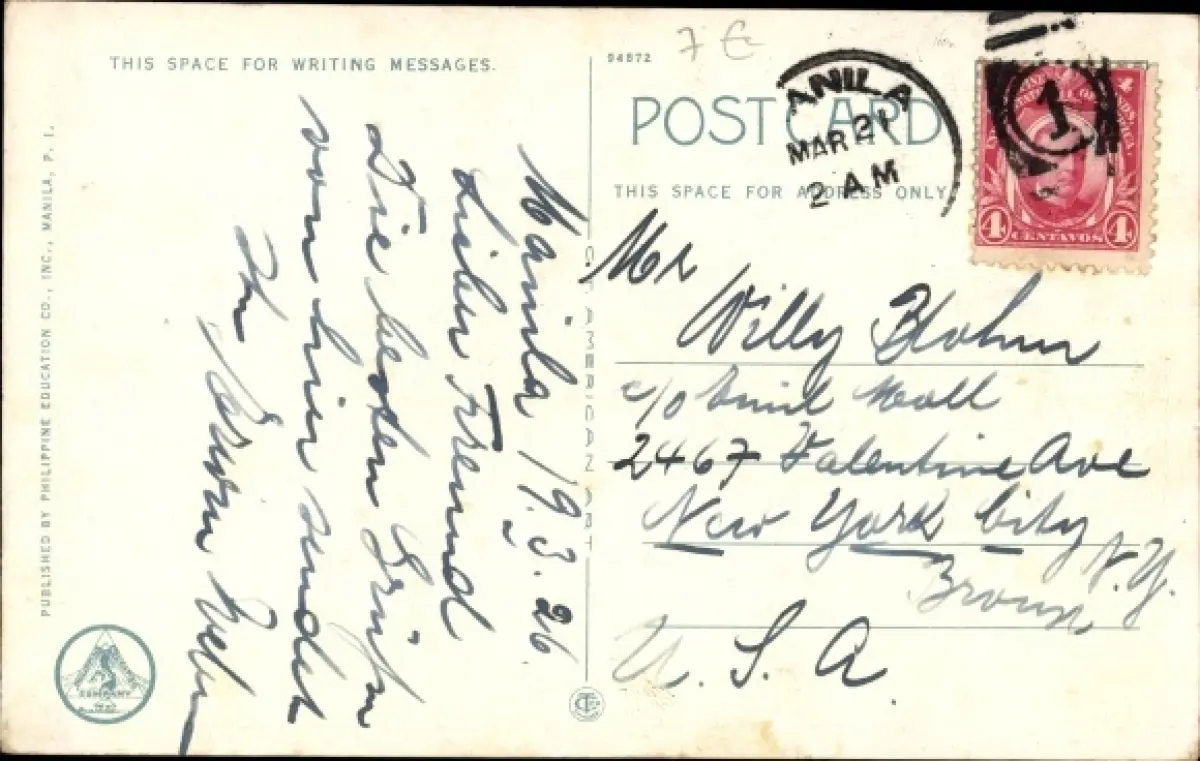 THIS SPACE FOR WRITING MESSAGES.
Manila 19.3.26
Lieber Freund
Die besten Grüße
von hier sendet
Ihr
PUBLISHED BY PHILIPPINE EDUCATION CO., INC., MANILA, P. I.
COMPANY
C.T. AMERICAN ART
94872
7 €
POSTCARD
THIS SPACE FOR ADDRESS ONLY
ANILA
MAR 21
2 AM
1
4 CENTAVOS 4
Mr
Willy Blohm
c/o Emil Moll
2467 Valentine Ave
New York City
N.Y.
Bronx
U. S. A.